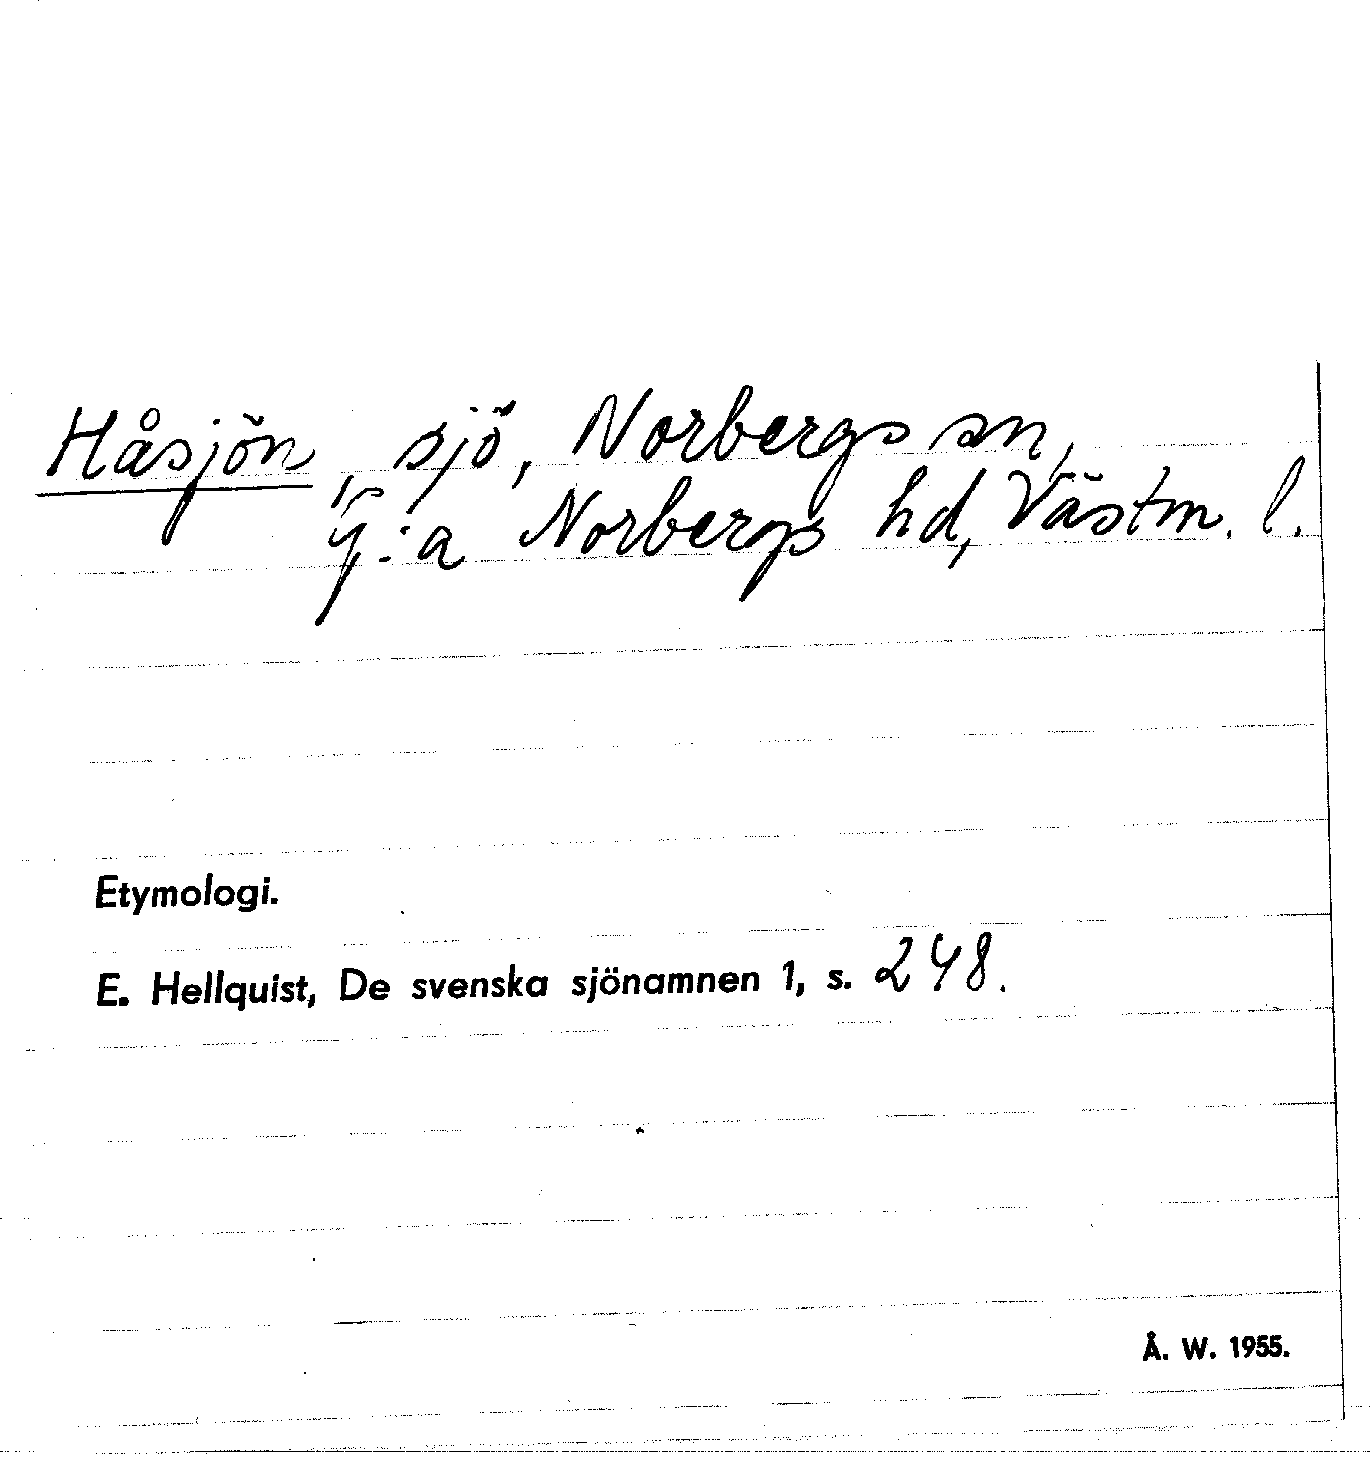 Håsjön, sjö, Norbergs sn,
f:a Norbergs hd, Västm. l.
Etymologi.
E. Hellquist, De svenska sjönamnen 1, s. 248.
Å. W. 1955.